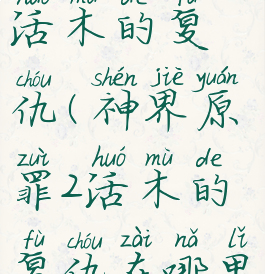 huó mù de fù
活木的复
chóu shén jiè yuán
仇(神界原
zuì huó mù de
罪2活木的
fù chóu zài nǎ lǐ
复仇在哪里